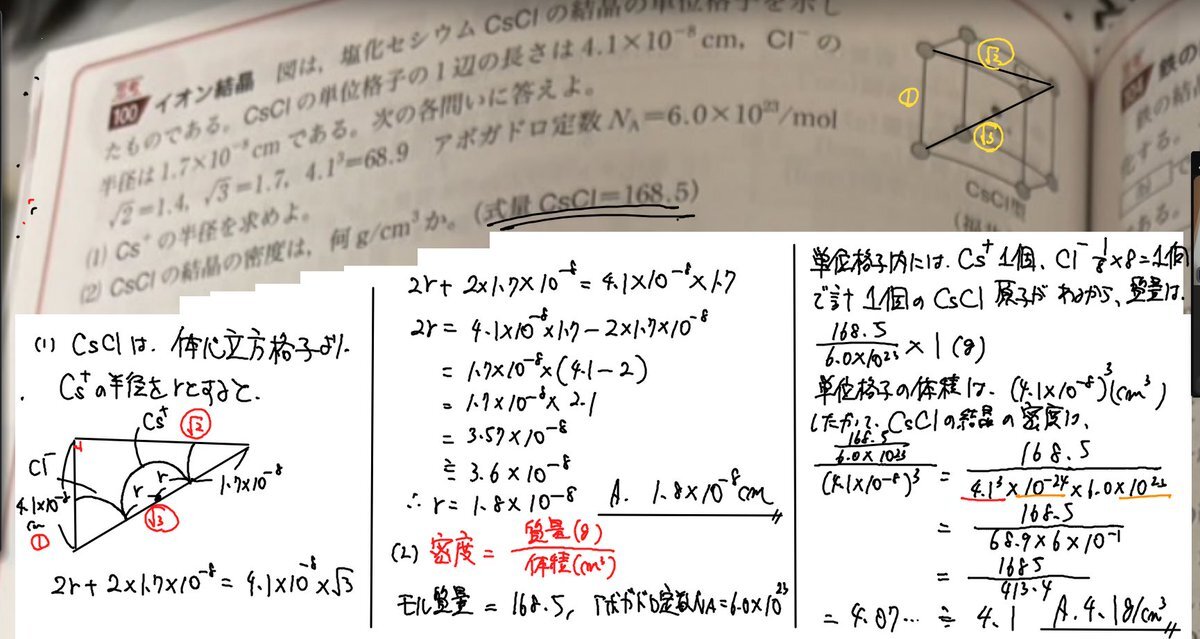 思考
100 イオン結晶 図は,塩化セシウム CsCl の結晶の単位格子を示し
たものである。CsCl の単位格子の1辺の長さは 4.1×10⁻⁸ cm, Cl⁻ の
半径は 1.7×10⁻⁸ cm である。次の各問いに答えよ。
√2=1.4, √3=1.7, 4.1³=68.9 アボガドロ定数 N_A=6.0×10²³/mol
(1) Cs⁺ の半径を求めよ。
(2) CsCl の結晶の密度は,何 g/cm³ か。(式量 CsCl=168.5)
√2
①
√3
CsCl型
104 鉄の
鉄の結
化する。
で
ある。
r
(1) CsClは、体心立方格子より、
Cs⁺の半径をrとすると、
Cs⁺
√2
Cl⁻
r
1.7×10⁻⁸
4.1×10⁻⁸
cm
r
①
√3
2r + 2×1.7×10⁻⁸ = 4.1×10⁻⁸×√3
2r + 2×1.7×10⁻⁸ = 4.1×10⁻⁸×1.7
2r = 4.1×10⁻⁸×1.7 − 2×1.7×10⁻⁸
= 1.7×10⁻⁸×(4.1−2)
= 1.7×10⁻⁸×2.1
= 3.57×10⁻⁸
≒ 3.6×10⁻⁸
∴ r = 1.8×10⁻⁸ A. 1.8×10⁻⁸cm
(2) 密度 = 質量(g)/体積(cm³)
モル質量 = 168.5, アボガドロ定数NA=6.0×10²³
単位格子内には、Cs⁺1個、Cl⁻ 1/8×8=1個
で計1個のCsCl原子があるから、質量は、
168.5/6.0×10²³ × 1 (g)
単位格子の体積は、(4.1×10⁻⁸)³(cm³)
したがって、CsClの結晶の密度は、
168.5/6.0×10²³/(4.1×10⁻⁸)³ = 168.5/4.1³×10⁻²⁴×6.0×10²³
= 168.5/68.9×6×10⁻¹
= 1685/413.4
= 4.07… ≒ 4.1 A. 4.1g/cm³